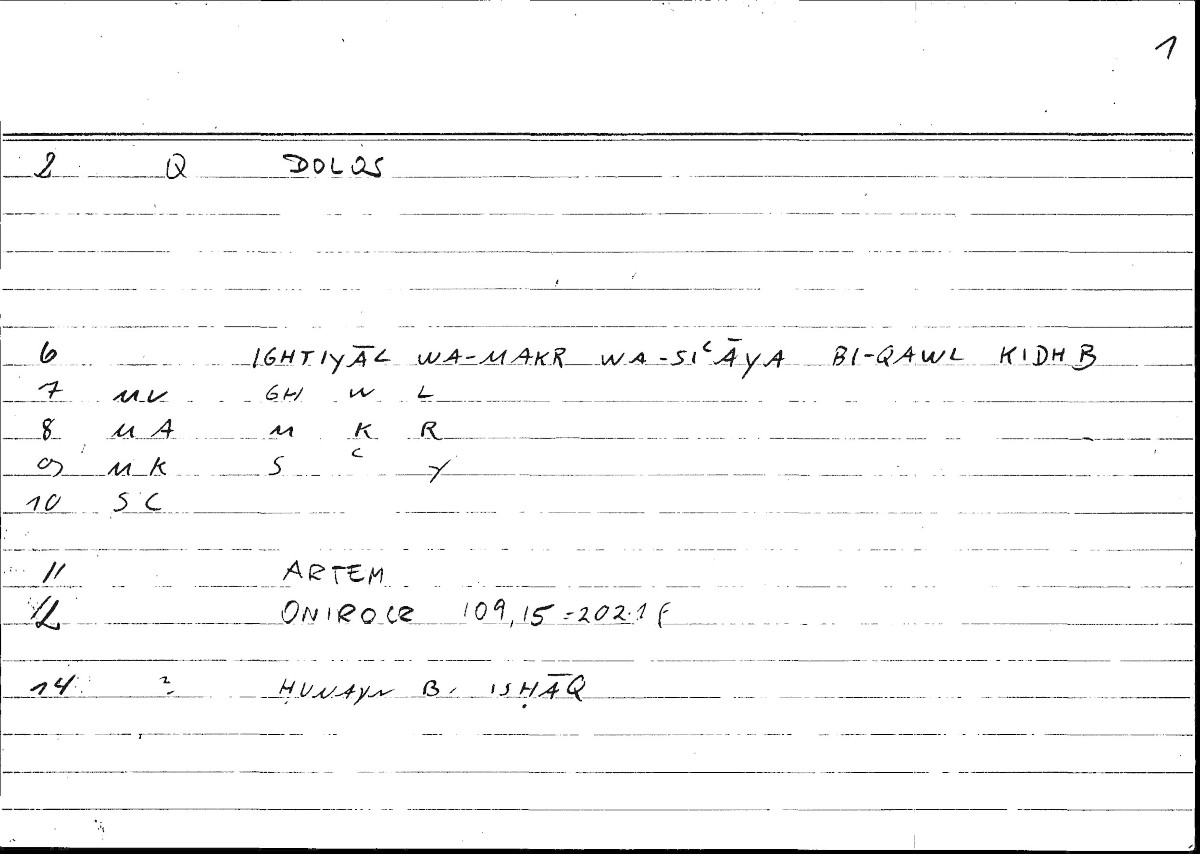 1
2 Q DOLOS
6 IGHTIYĀL WA-MAKR WA-SIʿĀYA BI-QAWL KIDHB
7 MV GH W L
8 MA M K R
9 MK S ʿ Y
10 SC
11 ARTEM
12 ONIROCR 109,15=202.1f
14 2 ḤUNAYN B. ISḤĀQ